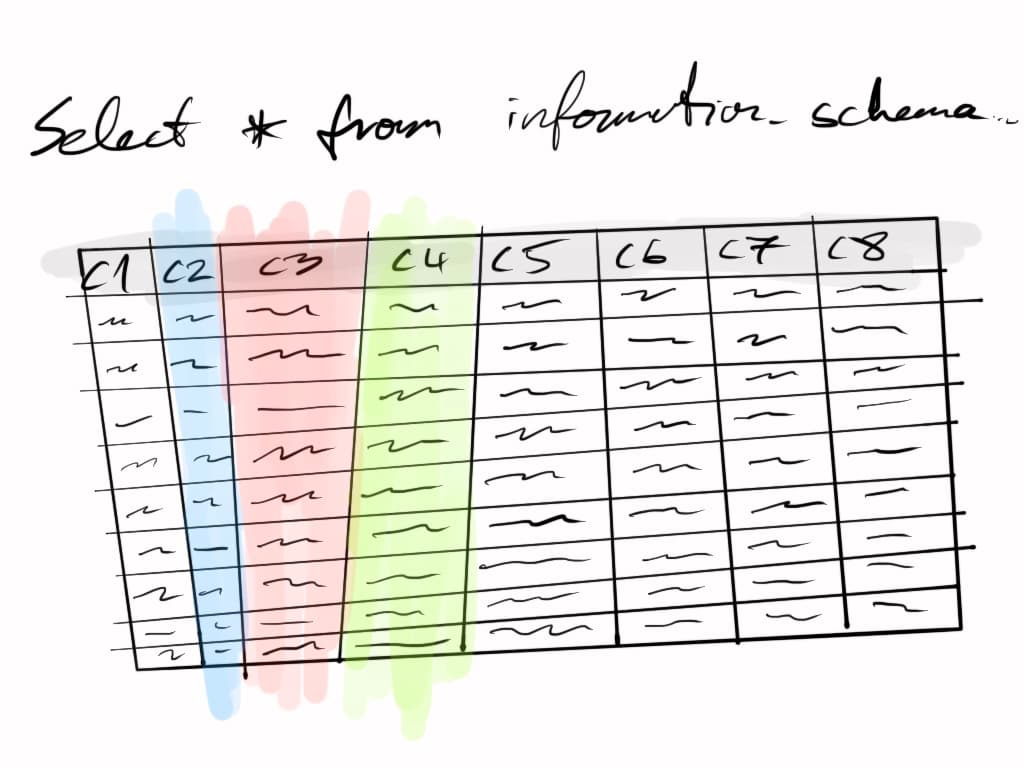 Select * from information_schema...
C1 C2 C3 C4 C5 C6 C7 C8